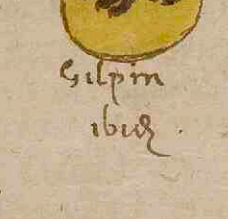 Gilpin
ibid .